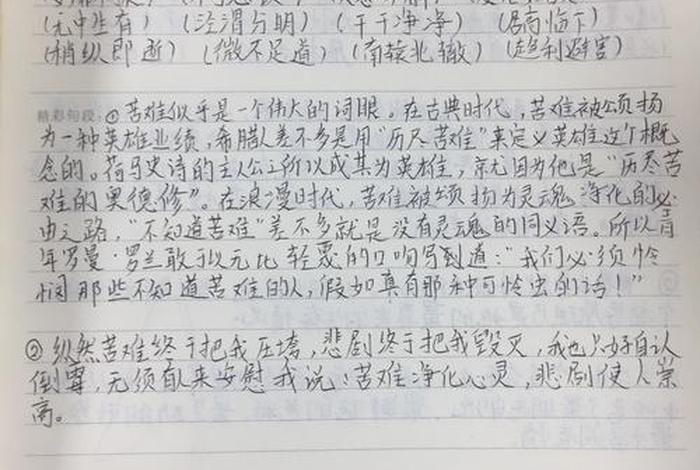 (无中生有) (泾渭分明) (干干净净) (居高临下)
(稍纵即逝) (微不足道) (南辕北辙) (趋利避害)
精彩句段：①苦难似乎是一个伟大的词眼。在古典时代，苦难被颂扬
为一种英雄业绩，希腊人差不多是用“历尽苦难”来定义英雄这个概
念的。荷马史诗的主人公之所以成其为英雄，就因为他是“历尽苦
难的奥德修”。在浪漫时代，苦难被颂扬为灵魂净化的必
由之路，“不知道苦难”差不多就是没有灵魂的同义语。所以青
年罗曼·罗兰敢于以无比轻蔑的口吻写到道：“我们必须怜
悯那些不知道苦难的人，假如真有那种可怜虫的话！”
②纵然苦难终于把我压垮，悲剧终于把我毁灭，我也只好自认
倒霉，无须谁来安慰我说：苦难净化心灵，悲剧使人崇
高。